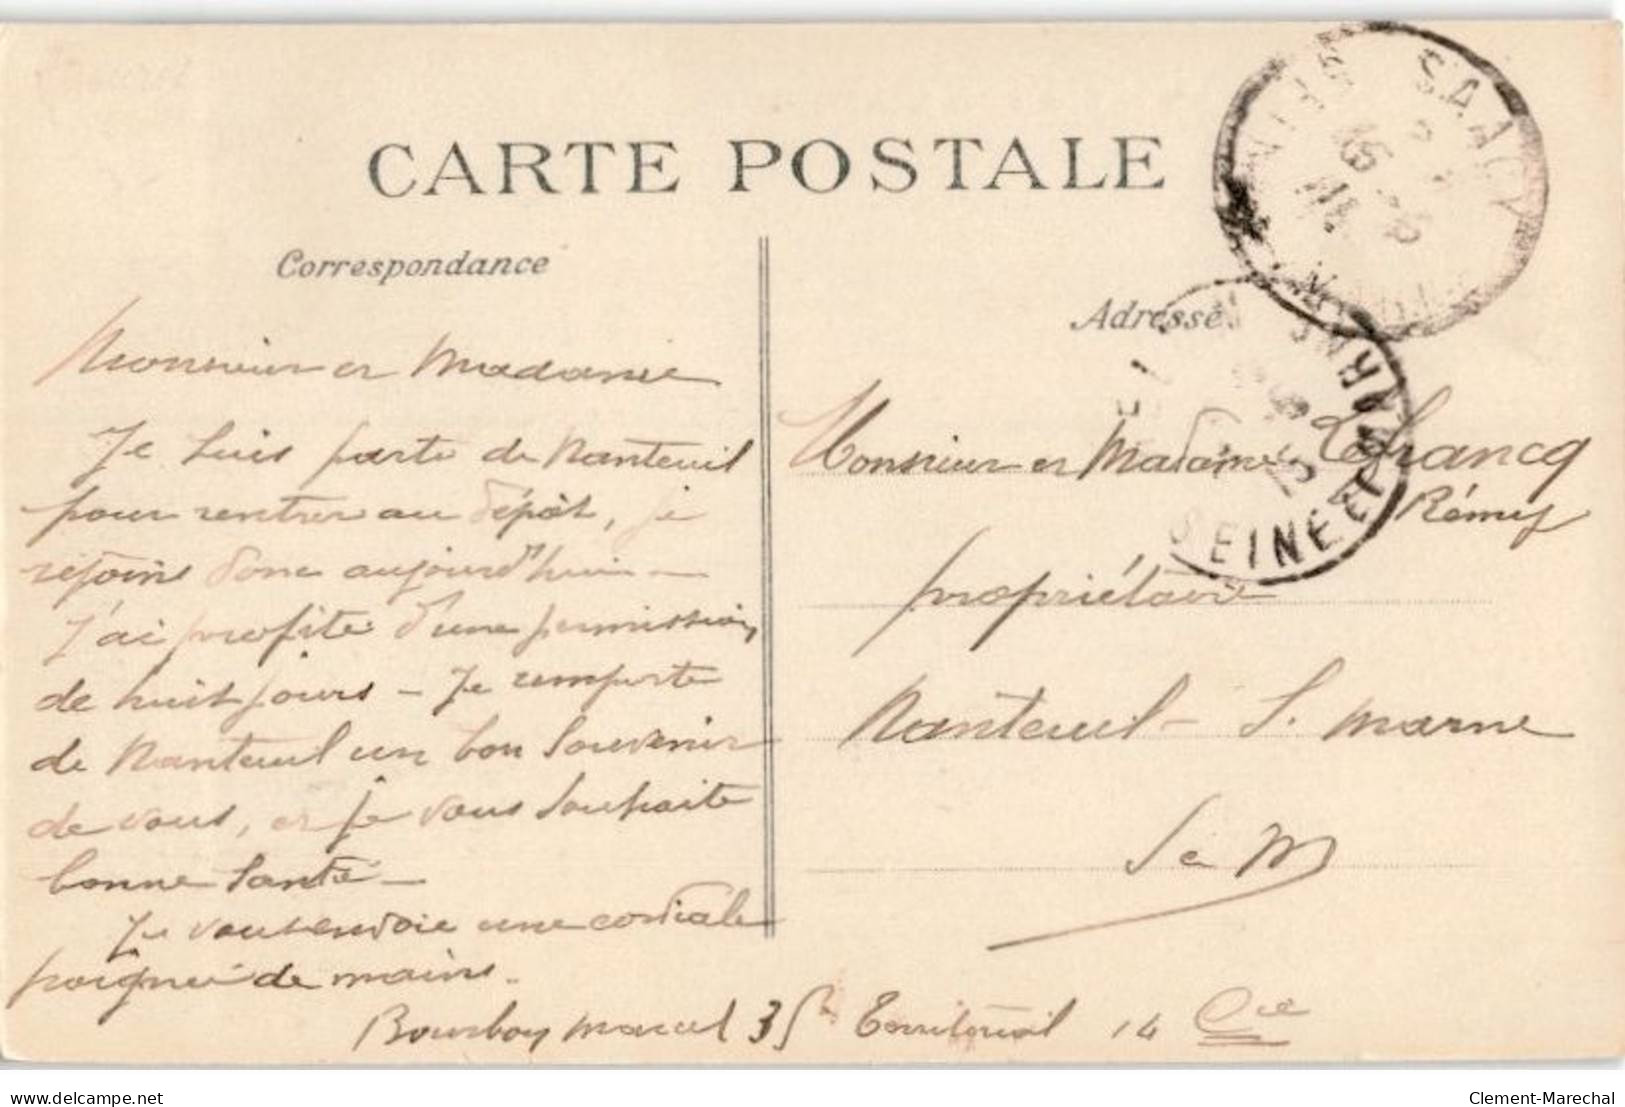 CARTE POSTALE
Correspondance
Monsieur et Madame
Je suis parti de Nanteuil
pour rentrer au dépôt, je
rejoins donc aujourd'hui —
J'ai profité d'une permission
de huit jours — Je remporte
de Nanteuil un bon souvenir
de vous, et je vous souhaite
bonne santé —
Je vous envoie une cordiale
poignée de mains.
Marcel 35e Territorial 14 Cie
SAACY
Adresse
SEINE ET MARNE
Monsieur et Madame Lefrancq
Rémy
propriétaire
Nanteuil - S. Marne
S et M
delcampe.net
Clement-Marechal